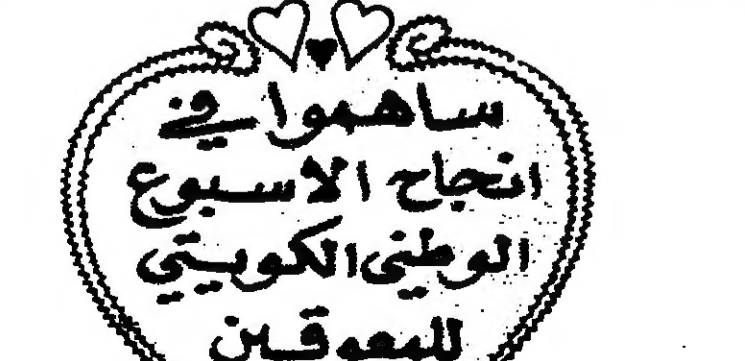 ساهموا في
انجاح الاسبوع
الوطني الكويتي
للمعوقين